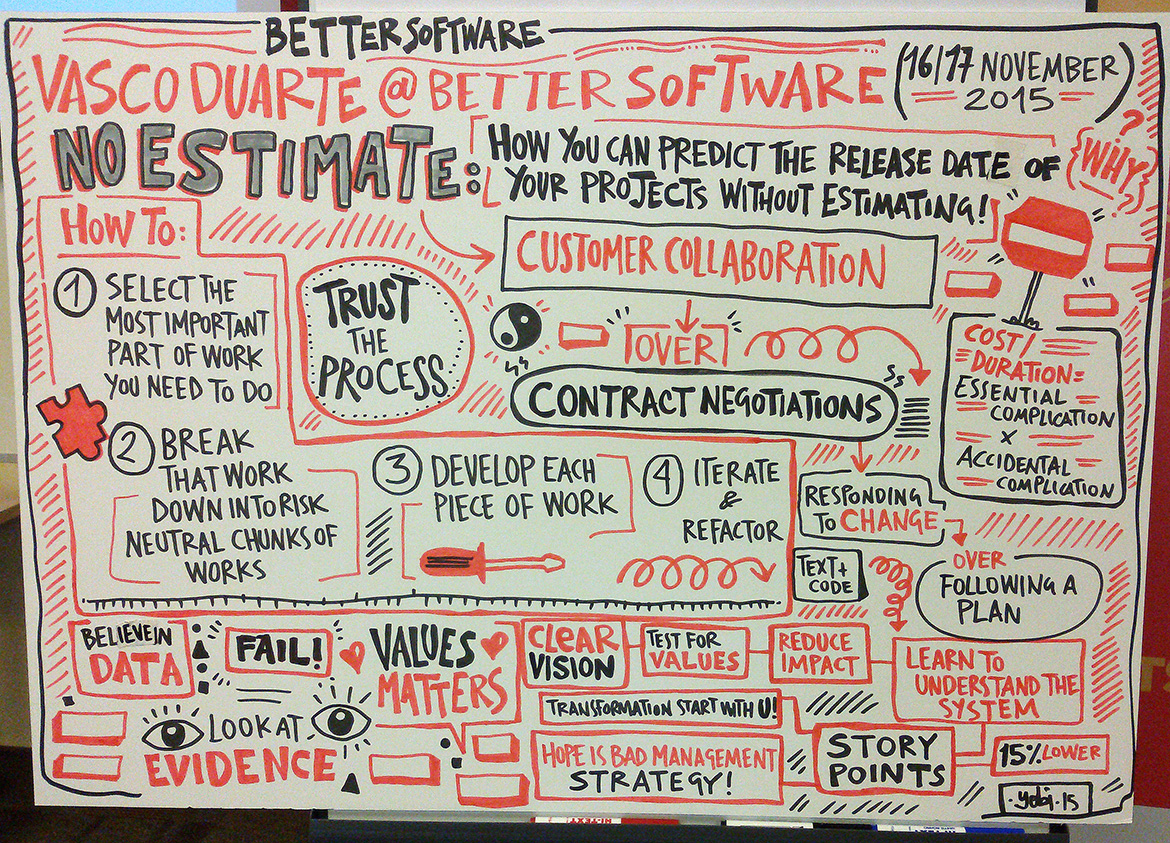 BETTERSOFTWARE
VASCO DUARTE @ BETTER SOFTWARE
(16/17 NOVEMBER
2015)
NO ESTIMATE:
HOW YOU CAN PREDICT THE RELEASE DATE OF
YOUR PROJECTS WITHOUT ESTIMATING!
WHY
?
HOW TO:
1 SELECT THE
MOST IMPORTANT
PART OF WORK
YOU NEED TO DO
2 BREAK
THAT WORK
DOWN INTO RISK
NEUTRAL CHUNKS OF
WORKS
3 DEVELOP EACH
PIECE OF WORK
4 ITERATE
&
REFACTOR
TRUST
THE
PROCESS
CUSTOMER COLLABORATION
OVER
CONTRACT NEGOTIATIONS
COST/
DURATION=
ESSENTIAL
COMPLICATION
x
ACCIDENTAL
COMPLICATION
RESPONDING
TO CHANGE
OVER
FOLLOWING A
PLAN
TEXT+
CODE
BELIEVE IN
DATA
FAIL!
VALUES
MATTERS
LOOK AT
EVIDENCE
CLEAR
VISION
TEST FOR
VALUES
REDUCE
IMPACT
LEARN TO
UNDERSTAND THE
SYSTEM
TRANSFORMATION START WITH U!
HOPE IS BAD MANAGEMENT
STRATEGY!
STORY
POINTS
15% LOWER
.yobi.15